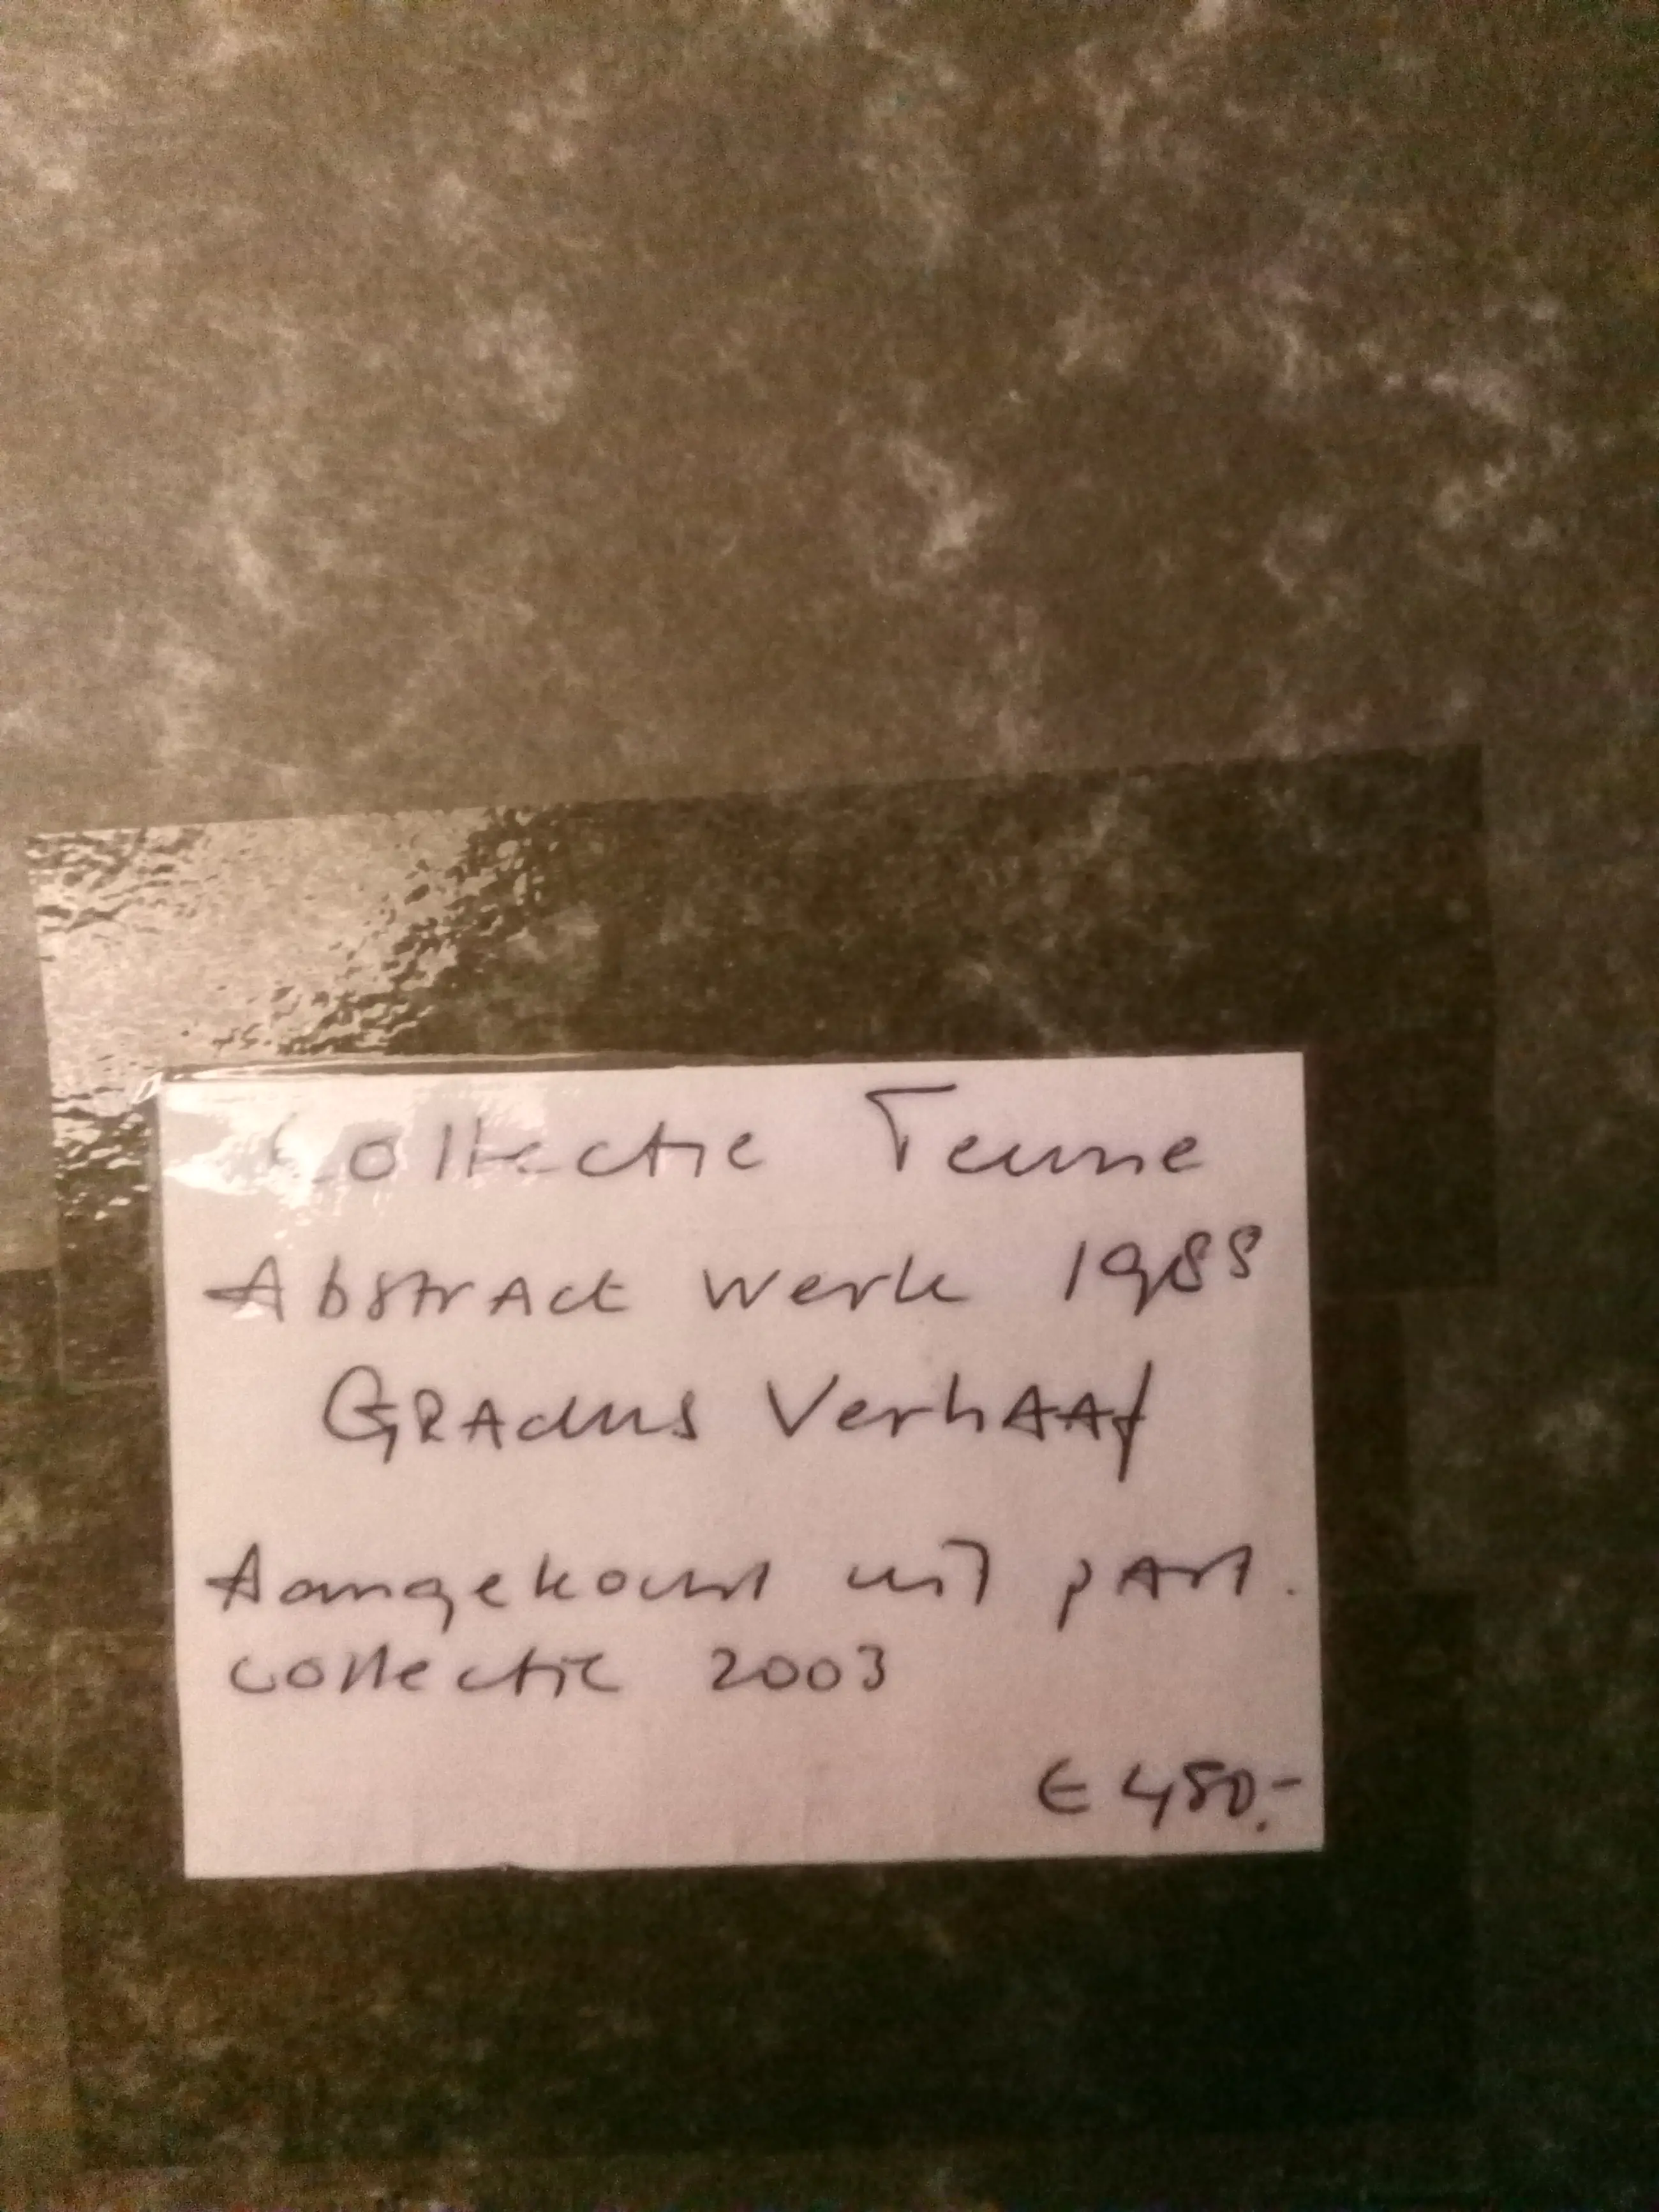 Collectie Teune
Abstract werk 1988
Gradus Verhaaf
Aangekocht uit part.
collectie 2003
€ 450.-